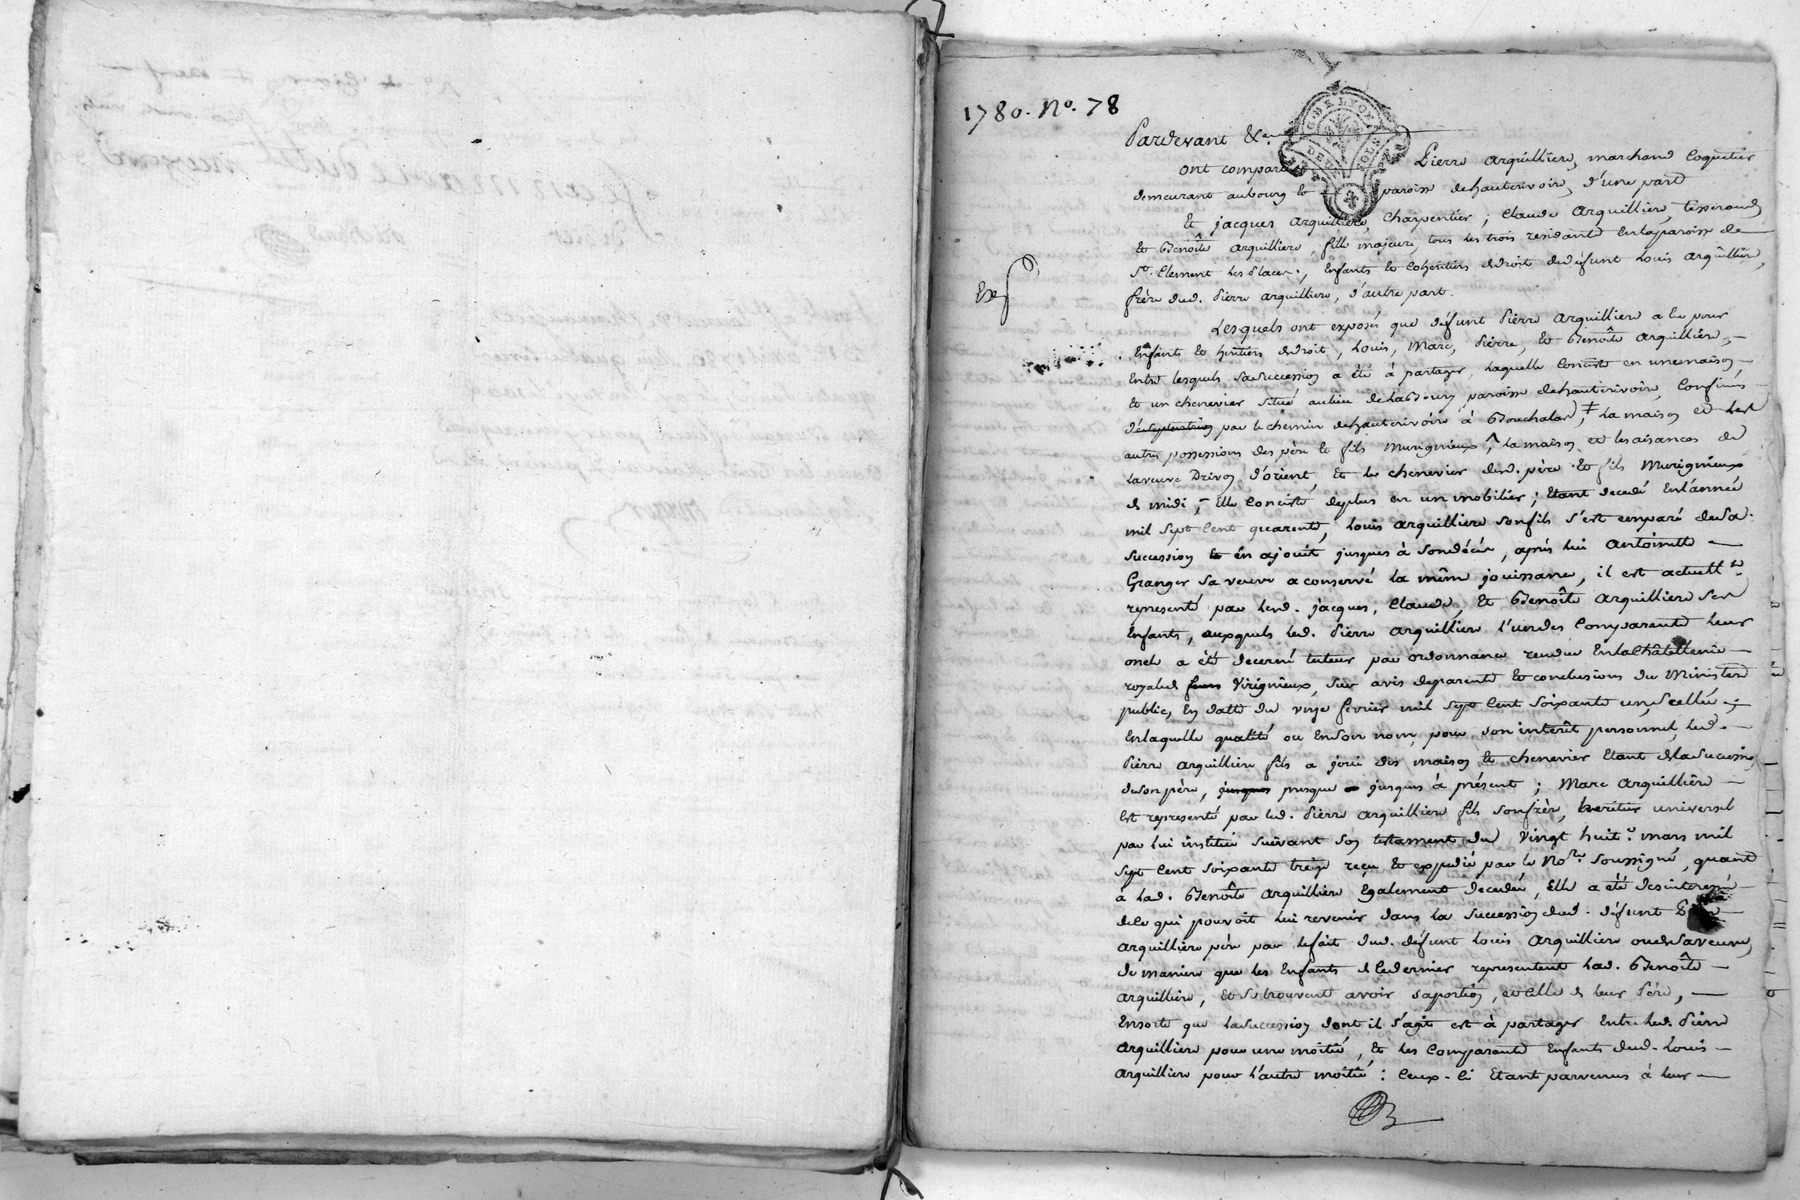 1780. No. 78
G. DE LYON
DEUX SOLS
Pardevant &c.
ont comparu Pierre arquilliere, marchand Coquetier
demeurant au bourg et paroisse de hauterivoire, d'une part
Et jacques arquilliere, charpentier ; Claude arquilliere, tisserand,
et Benoîte arquilliere, fille majeure, tous les trois residants en la paroisse de
St. Clement les Places, Enfants et Cohéritiers de droit de défunt Louis arquilliere,
frère dud. Pierre arquilliere, d'autre part.
Exp
Lesquels ont exposés que défunt Pierre arquilliere a eu pour
Enfants et héritiers de droit, Louis, Marc, Pierre, et Benoîte arquilliere,
Entre lesquels sa succession a été à partager, laquelle Consiste en une maison,
et un chenevier situé au lieu de la Bourg paroisse de hauterivoire, Confinés
par le chemin de hauterivoire à Bouchalas, ≠ la maison et les
autres possessions des père et fils Murignieux, la maison et les aisances de
la veuve Drivon d'orient, Et le chenevier desd. père et fils Murignieux
de midi, Elle Consiste deplus en un mobilier ; Etant decedé En l'année
mil sept Cent quarente, Louis arquilliere son fils s'est emparé de sa
succession et en a jouit jusques à son décés, après lui antoinette
Granger sa veuve a conservé la même jouissance, il est actuellt.
representé par lesd. jacques, Claude, Et Benoîte arquilliere ses
Enfants, auxquels led. Pierre arquilliere l'un des Comparants leur
oncle a été decerné tuteur par ordonnance rendue En la Châtellenie
royale de Virignieux, sur avis de parents et conclusions du Ministere
public, En datte du onze fevrier mil sept Cent soixante un, scellée ;
En laquelle qualité ou En son nom, pour son interêt personnel, led.
Pierre arquilliere fils a joui des maison et chenevier Etant de la succession
de son père, jusques presque jusques à présent ; Marc arquilliere
Est representé par led. Pierre arquilliere fils son frère, heritier universel
par lui institué suivant son testament du vingt huit mars mil
sept Cent soixante treize reçu et expedié par le Nore. soussigné, quant
à lad. Benoîte arquilliere Egalement decedée, Elle a été desinteressé
de Ce qui pouvoit lui revenir dans la succession dud. défunt Pierre
arquilliere père par le fait dud. défunt Louis arquilliere ou de sa veuve,
de maniere que les Enfants de Ce dernier representent lad. Benoîte
arquilliere, Et se trouvent avoir sa portion, et Celle de leur Père,
Ensorte que la succession dont il s'agit est à partager Entre led. Pierre
arquilliere pour une moitié, Et les Comparants Enfants dud. Louis
arquilliere pour l'autre moitié : Ceux-Ci Etant parvenus à leur